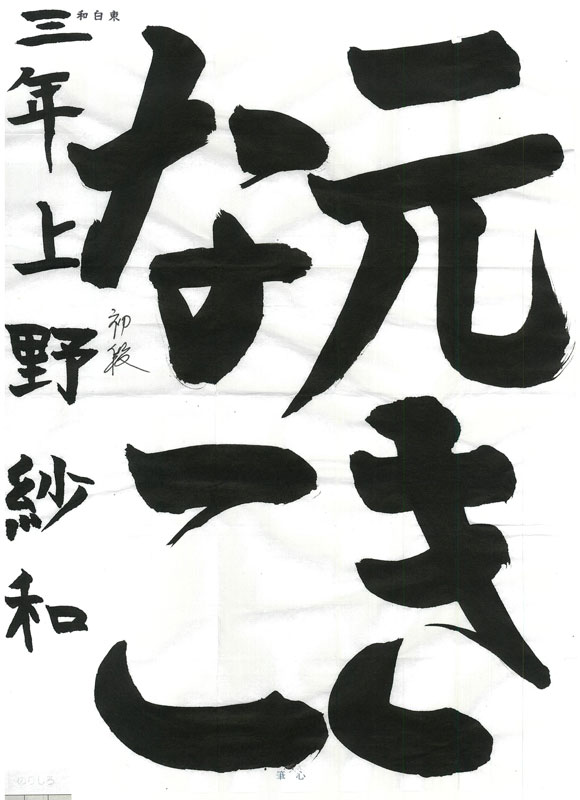 元き
なこ
初段
三年上野紗和
和白東
筆心